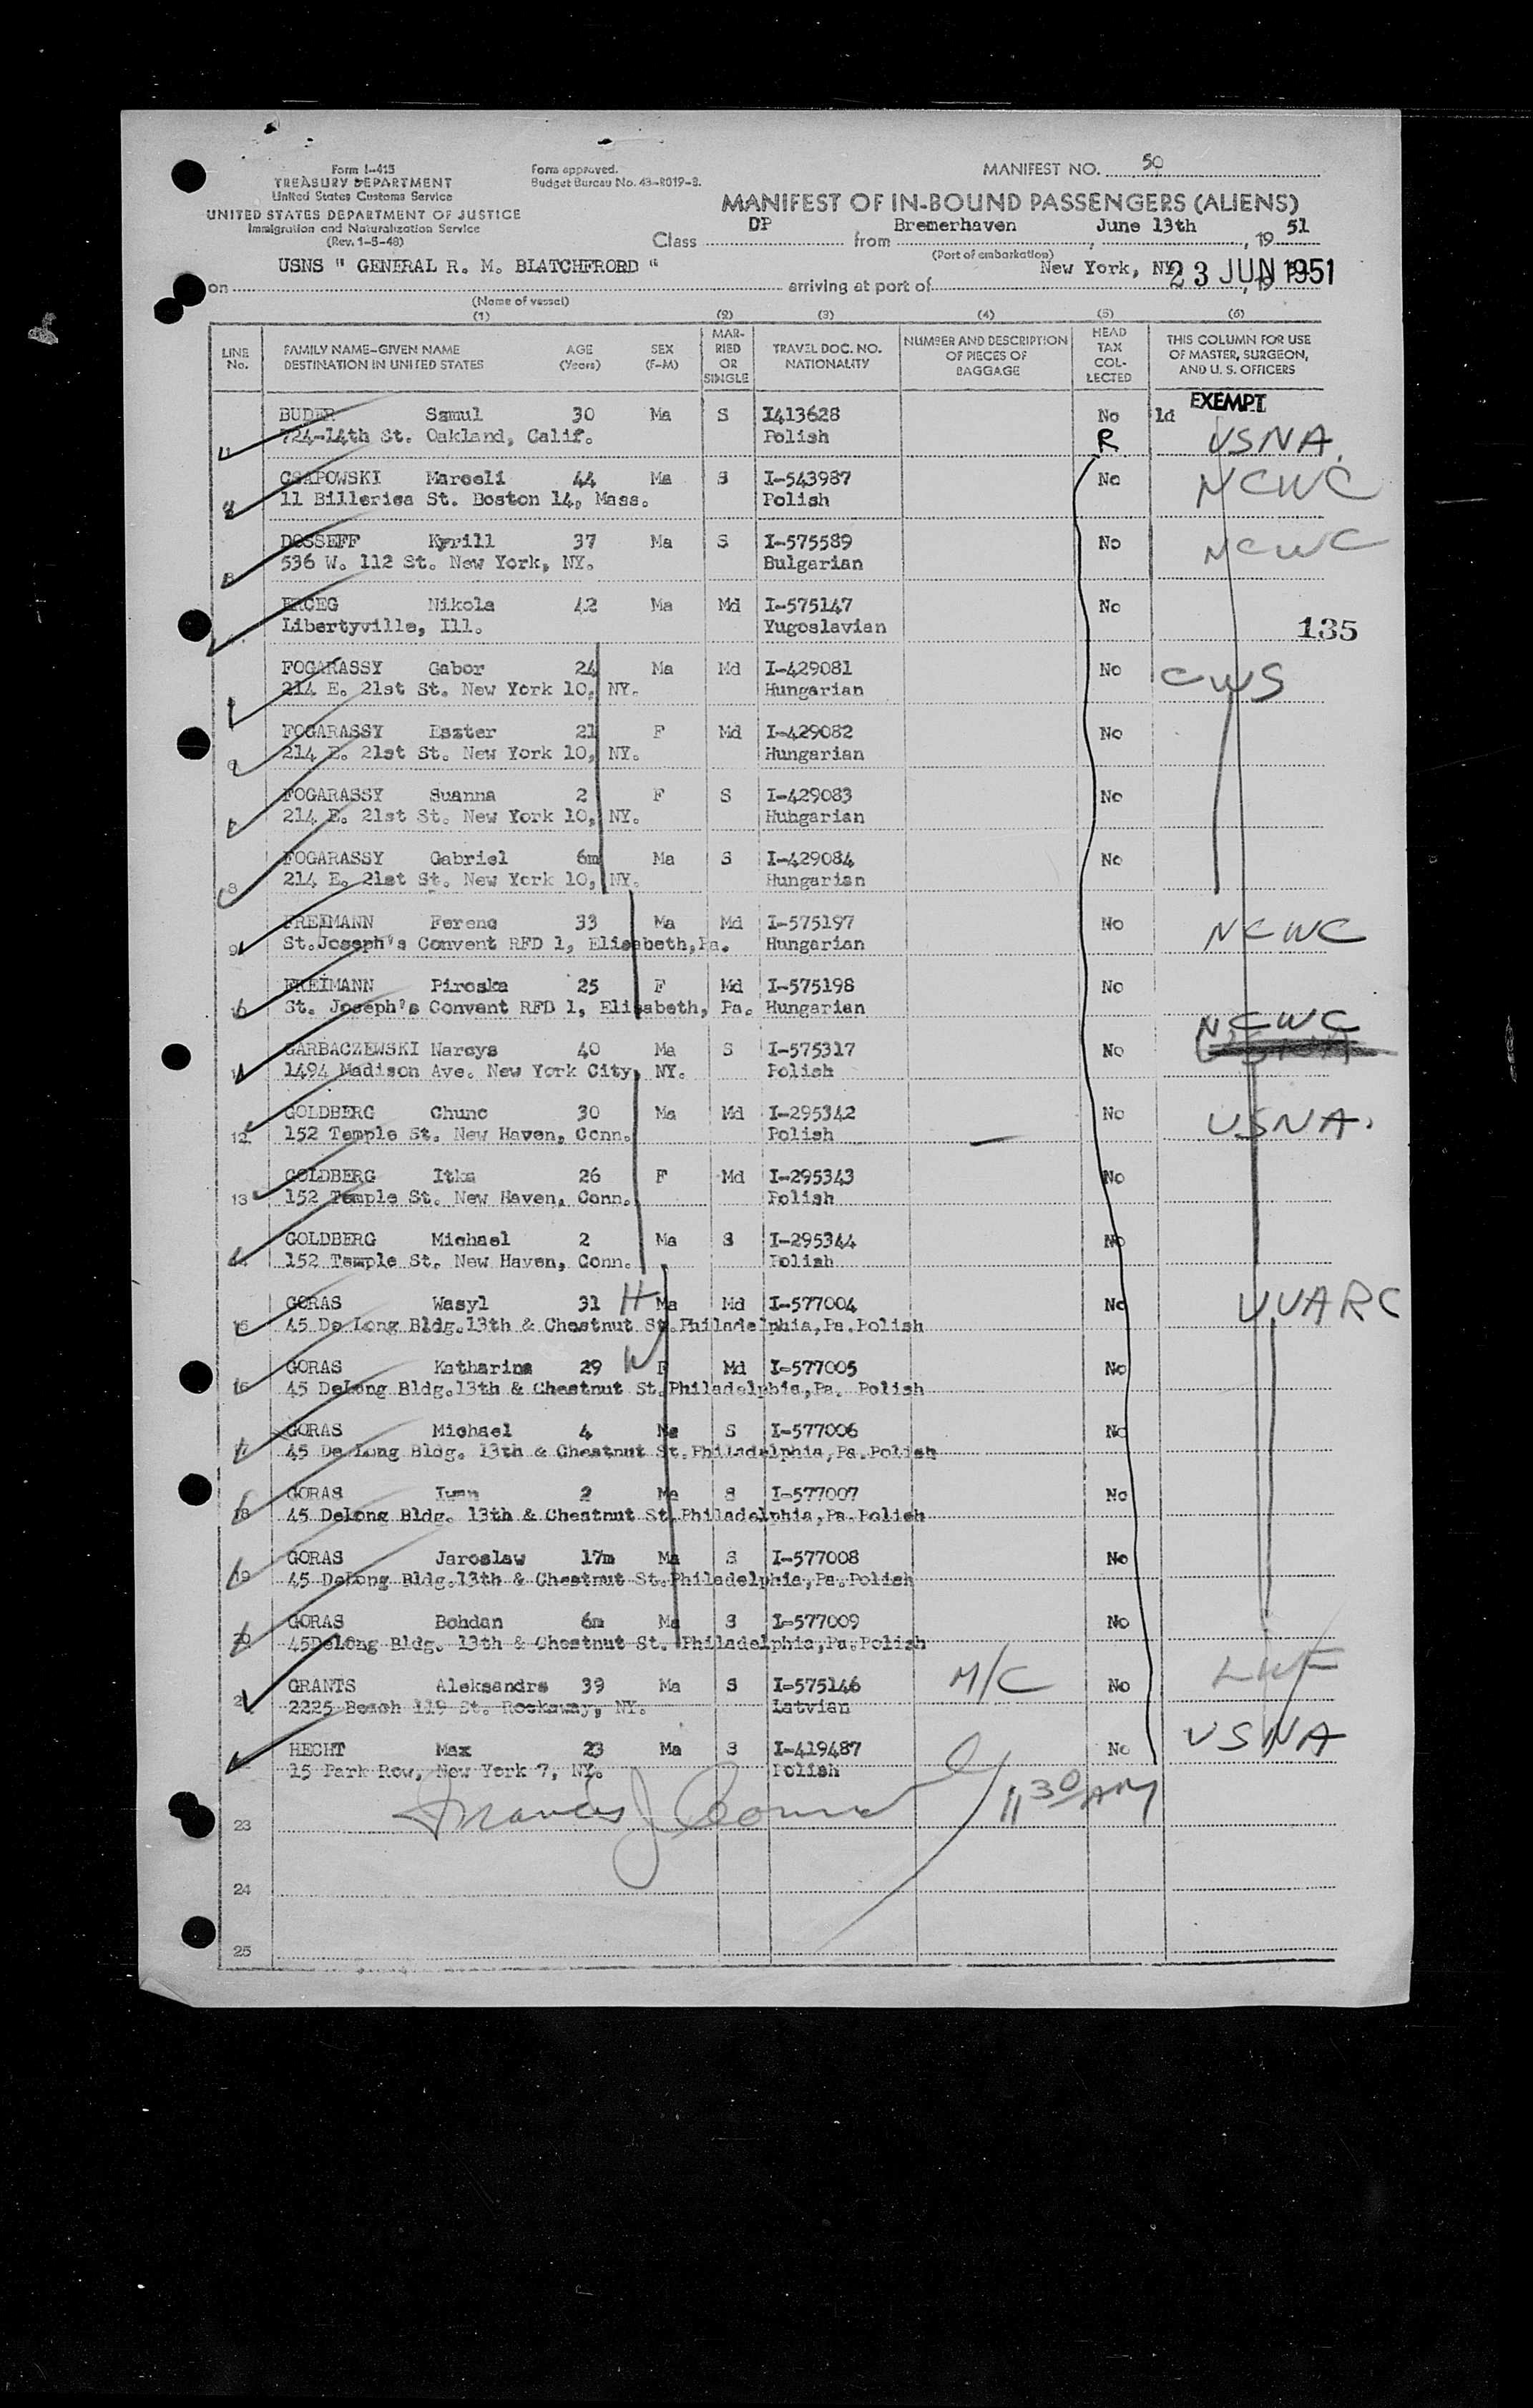 Form I-415
TREASURY DEPARTMENT
United States Customs Service
UNITED STATES DEPARTMENT OF JUSTICE
Immigration and Naturalization Service
(Rev. 1-5-48)
Form approved.
Budget Bureau No. 43-R019-2.
MANIFEST NO. 50
MANIFEST OF IN-BOUND PASSENGERS (ALIENS)
Class DP from Bremerhaven, June 13th, 1951
(Port of embarkation)
on USNS " GENERAL R. M. BLATCHFRORD " arriving at port of New York, NY 23 JUN 1951
(Name of vessel)
(1) (2) (3) (4) (5) (6)
LINE No. FAMILY NAME-GIVEN NAME DESTINATION IN UNITED STATES AGE (Years) SEX (F-M) MARRIED OR SINGLE TRAVEL DOC. NO. NATIONALITY NUMBER AND DESCRIPTION OF PIECES OF BAGGAGE HEAD TAX COLLECTED THIS COLUMN FOR USE OF MASTER, SURGEON, AND U. S. OFFICERS
EXEMPT
BUDER Samul 30 Ma S I413628 No ld
724-14th St. Oakland, Calif. Polish R USNA.
CSAPOWSKI Marceli 44 Ma S I-543987 No NCWC
11 Billerica St. Boston 14, Mass. Polish
DOSSEFF Kyrill 37 Ma S I-575589 No NCWC
536 W. 112 St. New York, NY. Bulgarian
ERCEG Nikola 42 Ma Md I-575147 No
Libertyville, Ill. Yugoslavian 135
FOGARASSY Gabor 24 Ma Md I-429081 No CWS
214 E. 21st St. New York 10, NY. Hungarian
FOGARASSY Eszter 21 F Md I-429082 No
214 E. 21st St. New York 10, NY. Hungarian
FOGARASSY Suanna 2 F S I-429083 No
214 E. 21st St. New York 10, NY. Huhgarian
8 FOGARASSY Gabriel 6m Ma S I-429084 No
214 E. 21st St. New York 10, NY. Hungarian
9 FREIMANN Ferenc 33 Ma Md I-575197 No NCWC
St.Joseph's Convent RFD 1, Elisabeth,Pa. Hungarian
10 FREIMANN Piroska 25 F Md I-575198 No
St. Joseph's Convent RFD 1, Elisabeth, Pa. Hungarian
NCWC
GARBACZEWSKI Narcys 40 Ma S I-575317 No
1494 Madison Ave. New York City, NY. Polish
GOLDBERG Chunc 30 Ma Md I-295342 No USNA.
12 152 Temple St. New Haven, Conn. Polish
GOLDBERG Itka 26 F Md I-295343 No
13 152 Temple St. New Haven, Conn. Polish
GOLDBERG Michael 2 Ma S I-295344 No
152 Temple St. New Haven, Conn. Polish
GORAS Wasyl 31 H Ma Md I-577004 No UUARC
15 45 De Long Bldg.13th & Chestnut St.Philadelphia,Pa.Polish
GORAS Katharina 29 W F Md I-577005 No
16 45 DeLong Bldg.13th & Chestnut St.Philadelphia,Pa. Polish
GORAS Michael 4 Ma S I-577006 No
17 45 De Long Bldg. 13th & Chestnut St.Philadelphia,Pa.Polish
GORAS Iwan 2 Ma S I-577007 No
18 45 DeLong Bldg. 13th & Chestnut St.Philadelphia,Pa.Polish
GORAS Jaroslaw 17m Ma S I-577008 No
19 45 DeLong Bldg.13th & Chestnut St.Philadelphia,Pa.Polish
GORAS Bohdan 6m Ma S I-577009 No
20 45DeLong Bldg. 13th & Chestnut St. Philadelphia,Pa.Polish
GRANTS Aleksandrs 39 Ma S I-575146 M/C No LWF
2225 Beach 119 St. Rockaway, NY. Latvian
HECHT Max 23 Ma S I-419487 No USNA
15 Park Row, New York 7, NY. Polish
Francis J 11 30 AM
23
24
25